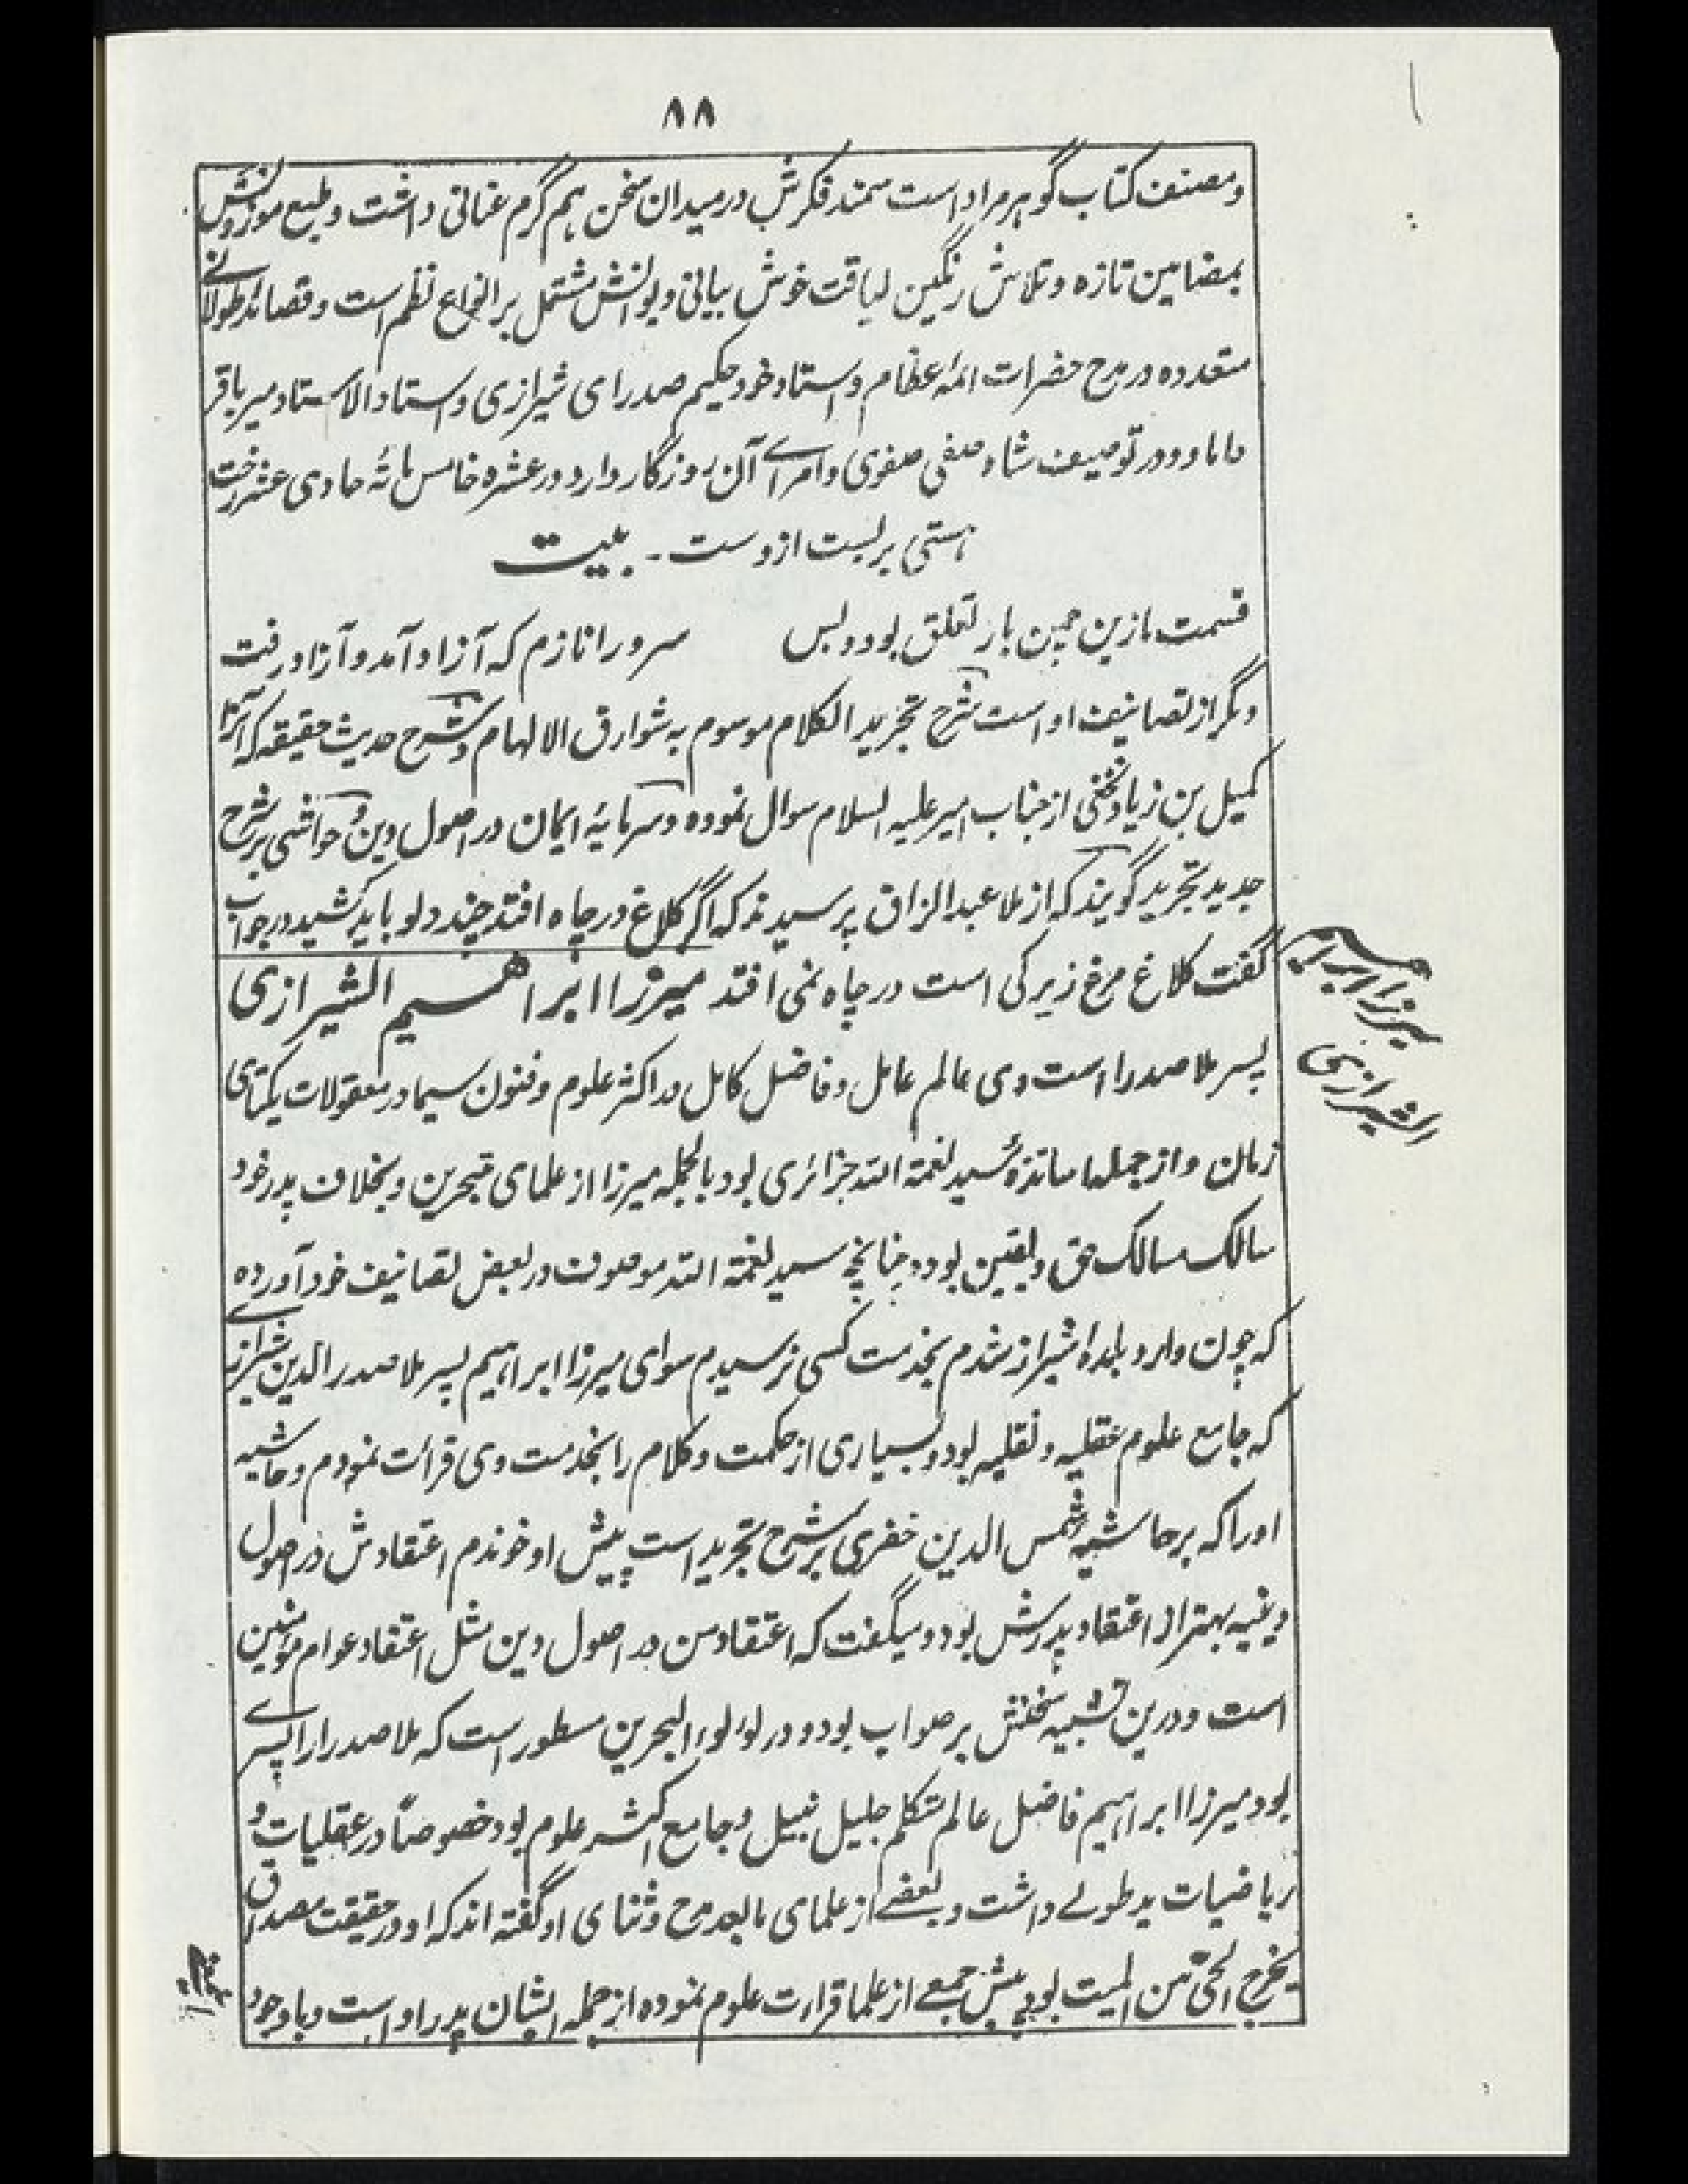 ۸۸
ومصنف کتاب گوهر مراد است سمند فکرش در میدان سخن هم گرم عنانی داشت و طبع موزونش
بمضامین تازه و تلاش رنگین لیاقت خوش بیانی دیوانش مشتمل بر انواع نظم است و قصائد طولانے
متعدده در مدح حضرات ائمه عظام و استاد خود حکیم صدرای شیرازی و استاد الاستاد میر باقر
داماد و در توصیف شاه صفی صفوی و امرای آن روزگار دارد در عشره خامس مائه حادی عشر رخت
هستی بر بست ازوست ـ بیت
قسمت ما زین چمن بار تعلق بود و بس سرو را نازم که آزاد آمد و آزاد رفت
دیگر از تصانیف او است شرح تجرید الکلام موسوم به شوارق الالهام و شرح حدیث حقیقه که آنرا
کمیل بن زیاد نخعی از جناب امیر علیه السلام سوال نموده و سرمایهٔ ایمان در اصول دین و حواشی بر شرح
جدید تجرید گویند که از ملا عبد الرزاق پرسیدند که اگر کلاغ در چاه افتد چند دلو باید کشید در جواب
گفت کلاغ مرغ زیرکی است در چاه نمی افتد میرزا ابراهیم الشیرازی
پسر ملا صدرا است وی عالم عامل و فاضل کامل در اکثر علوم و فنون سیما در معقولات یکتای
زمان و از جمله اساتذهٔ سید نعمة الله جزائری بود بالجمله میرزا از علمای متبحرین و بخلاف پدر خود
سالک مسالک حق و یقین بوده چنانچه سید نعمة الله موصوف در بعض تصانیف خود آورده
که چون وارد بلده شیراز شدم بخدمت کسی نرسیدم سوای میرزا ابراهیم پسر ملا صدر الدین شیرازی
که جامع علوم عقلیه و نقلیه بود و بسیاری از حکمت و کلام را بخدمت وی قرائت نمودم و حاشیه
او را که بر حاشیه شمس الدین خفری بر شرح تجرید است پیش او خوندم اعتقادش در اصول
دینیه بهتر از اعتقاد پدرش بود و میگفت که اعتقاد من در اصول دین مثل اعتقاد عوام مومنین
است و درین تشبیه سخنش بر صواب بود و در لؤلؤ البحرین مسطور است که ملا صدرا را پسرے
بود میرزا ابراهیم فاضل عالم متکلم جلیل نبیل و جامع اکثر علوم بود خصوصاً در عقلیات و
ریاضیات ید طولے داشت و بعضے از علمای ما بعد مدح و ثنای او گفته اند که او در حقیقت مصداق
یخرج الحیّ من المیت بود پیش جمعے از علما قرارت علوم نموده از جمله ایشان پدر او است و با وجود
میرزا ابراهیم
الشیرازی